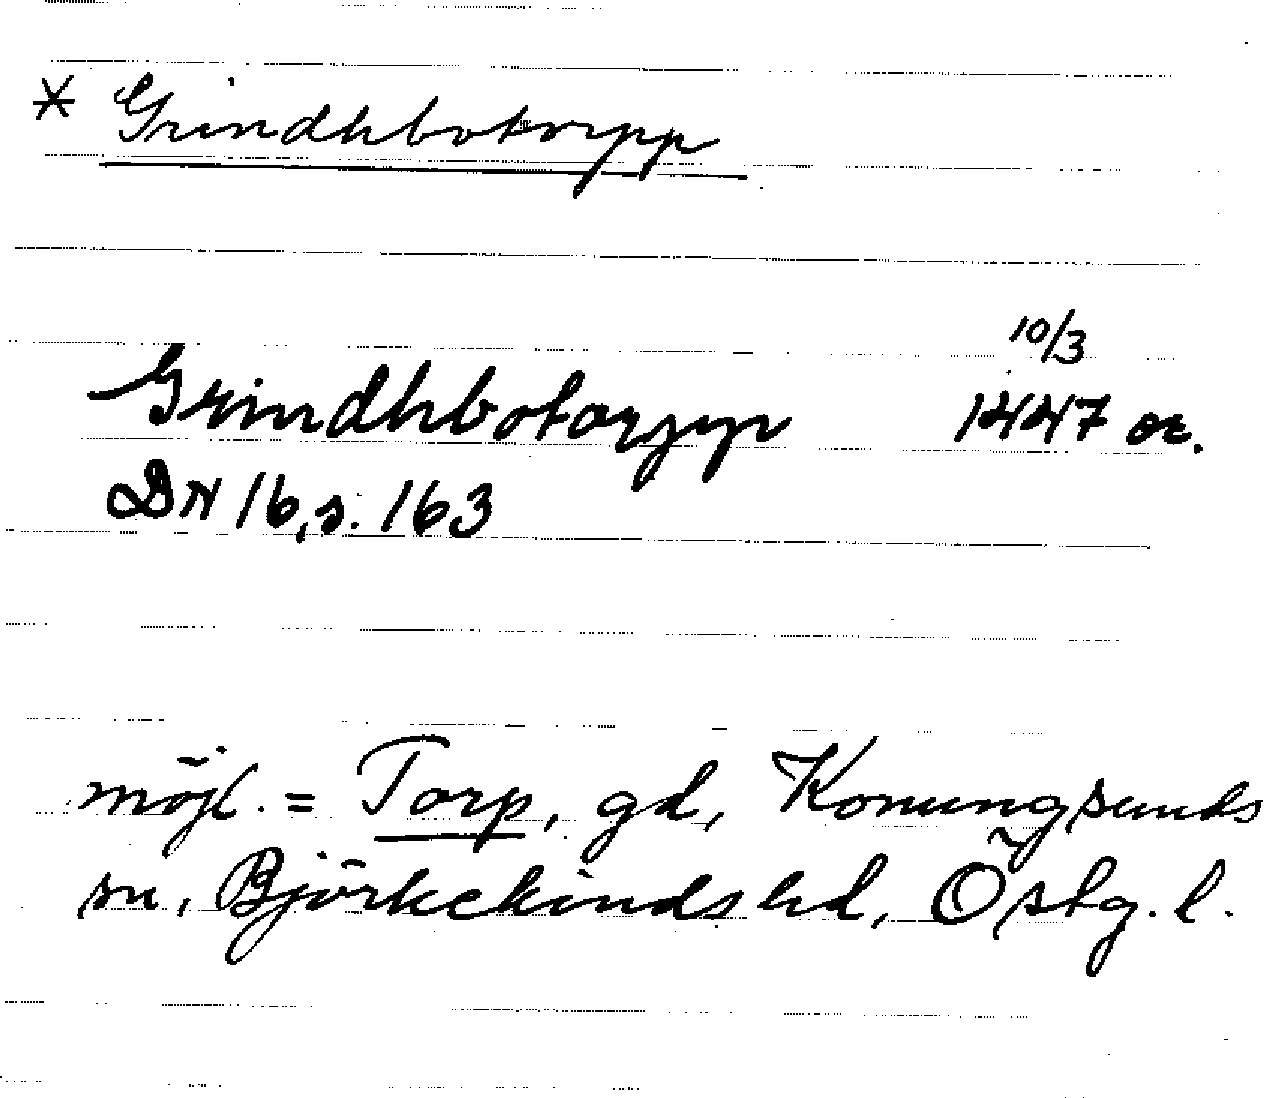 * Grindhbotorpp
10/3
Grindhbotorpp 1447 or.
DN 16, s. 163
möjl. = Torp, gd, Konungsunds
sn, Björkekinds hd, Östg. l.